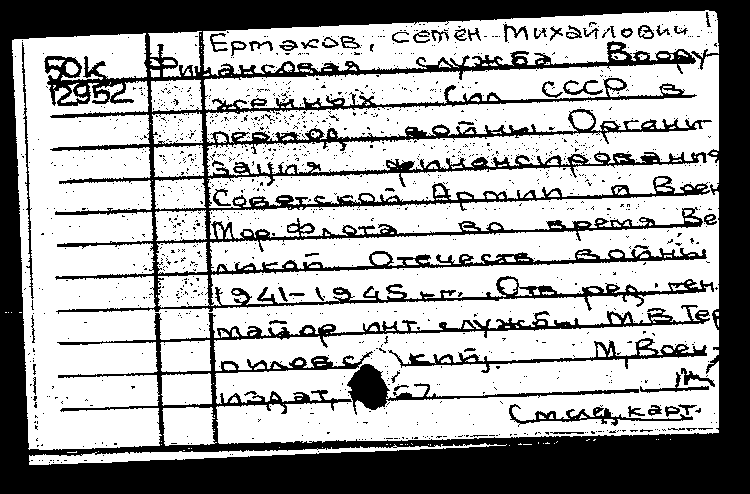 Ермаков, семён Михайлович
50к Финансовая служба Воору-
12952 женных Сил СССР в
период войны. Органи
зация финансирования
Советской Армии и Воен
Мор. Флота во время Ве
ликой Отечеств войны
1941-1945 гг. Отв ред. ген.
майор инт. службы М.В. Тер
пиловский. М, Воен-
издат,
См.след.карт.